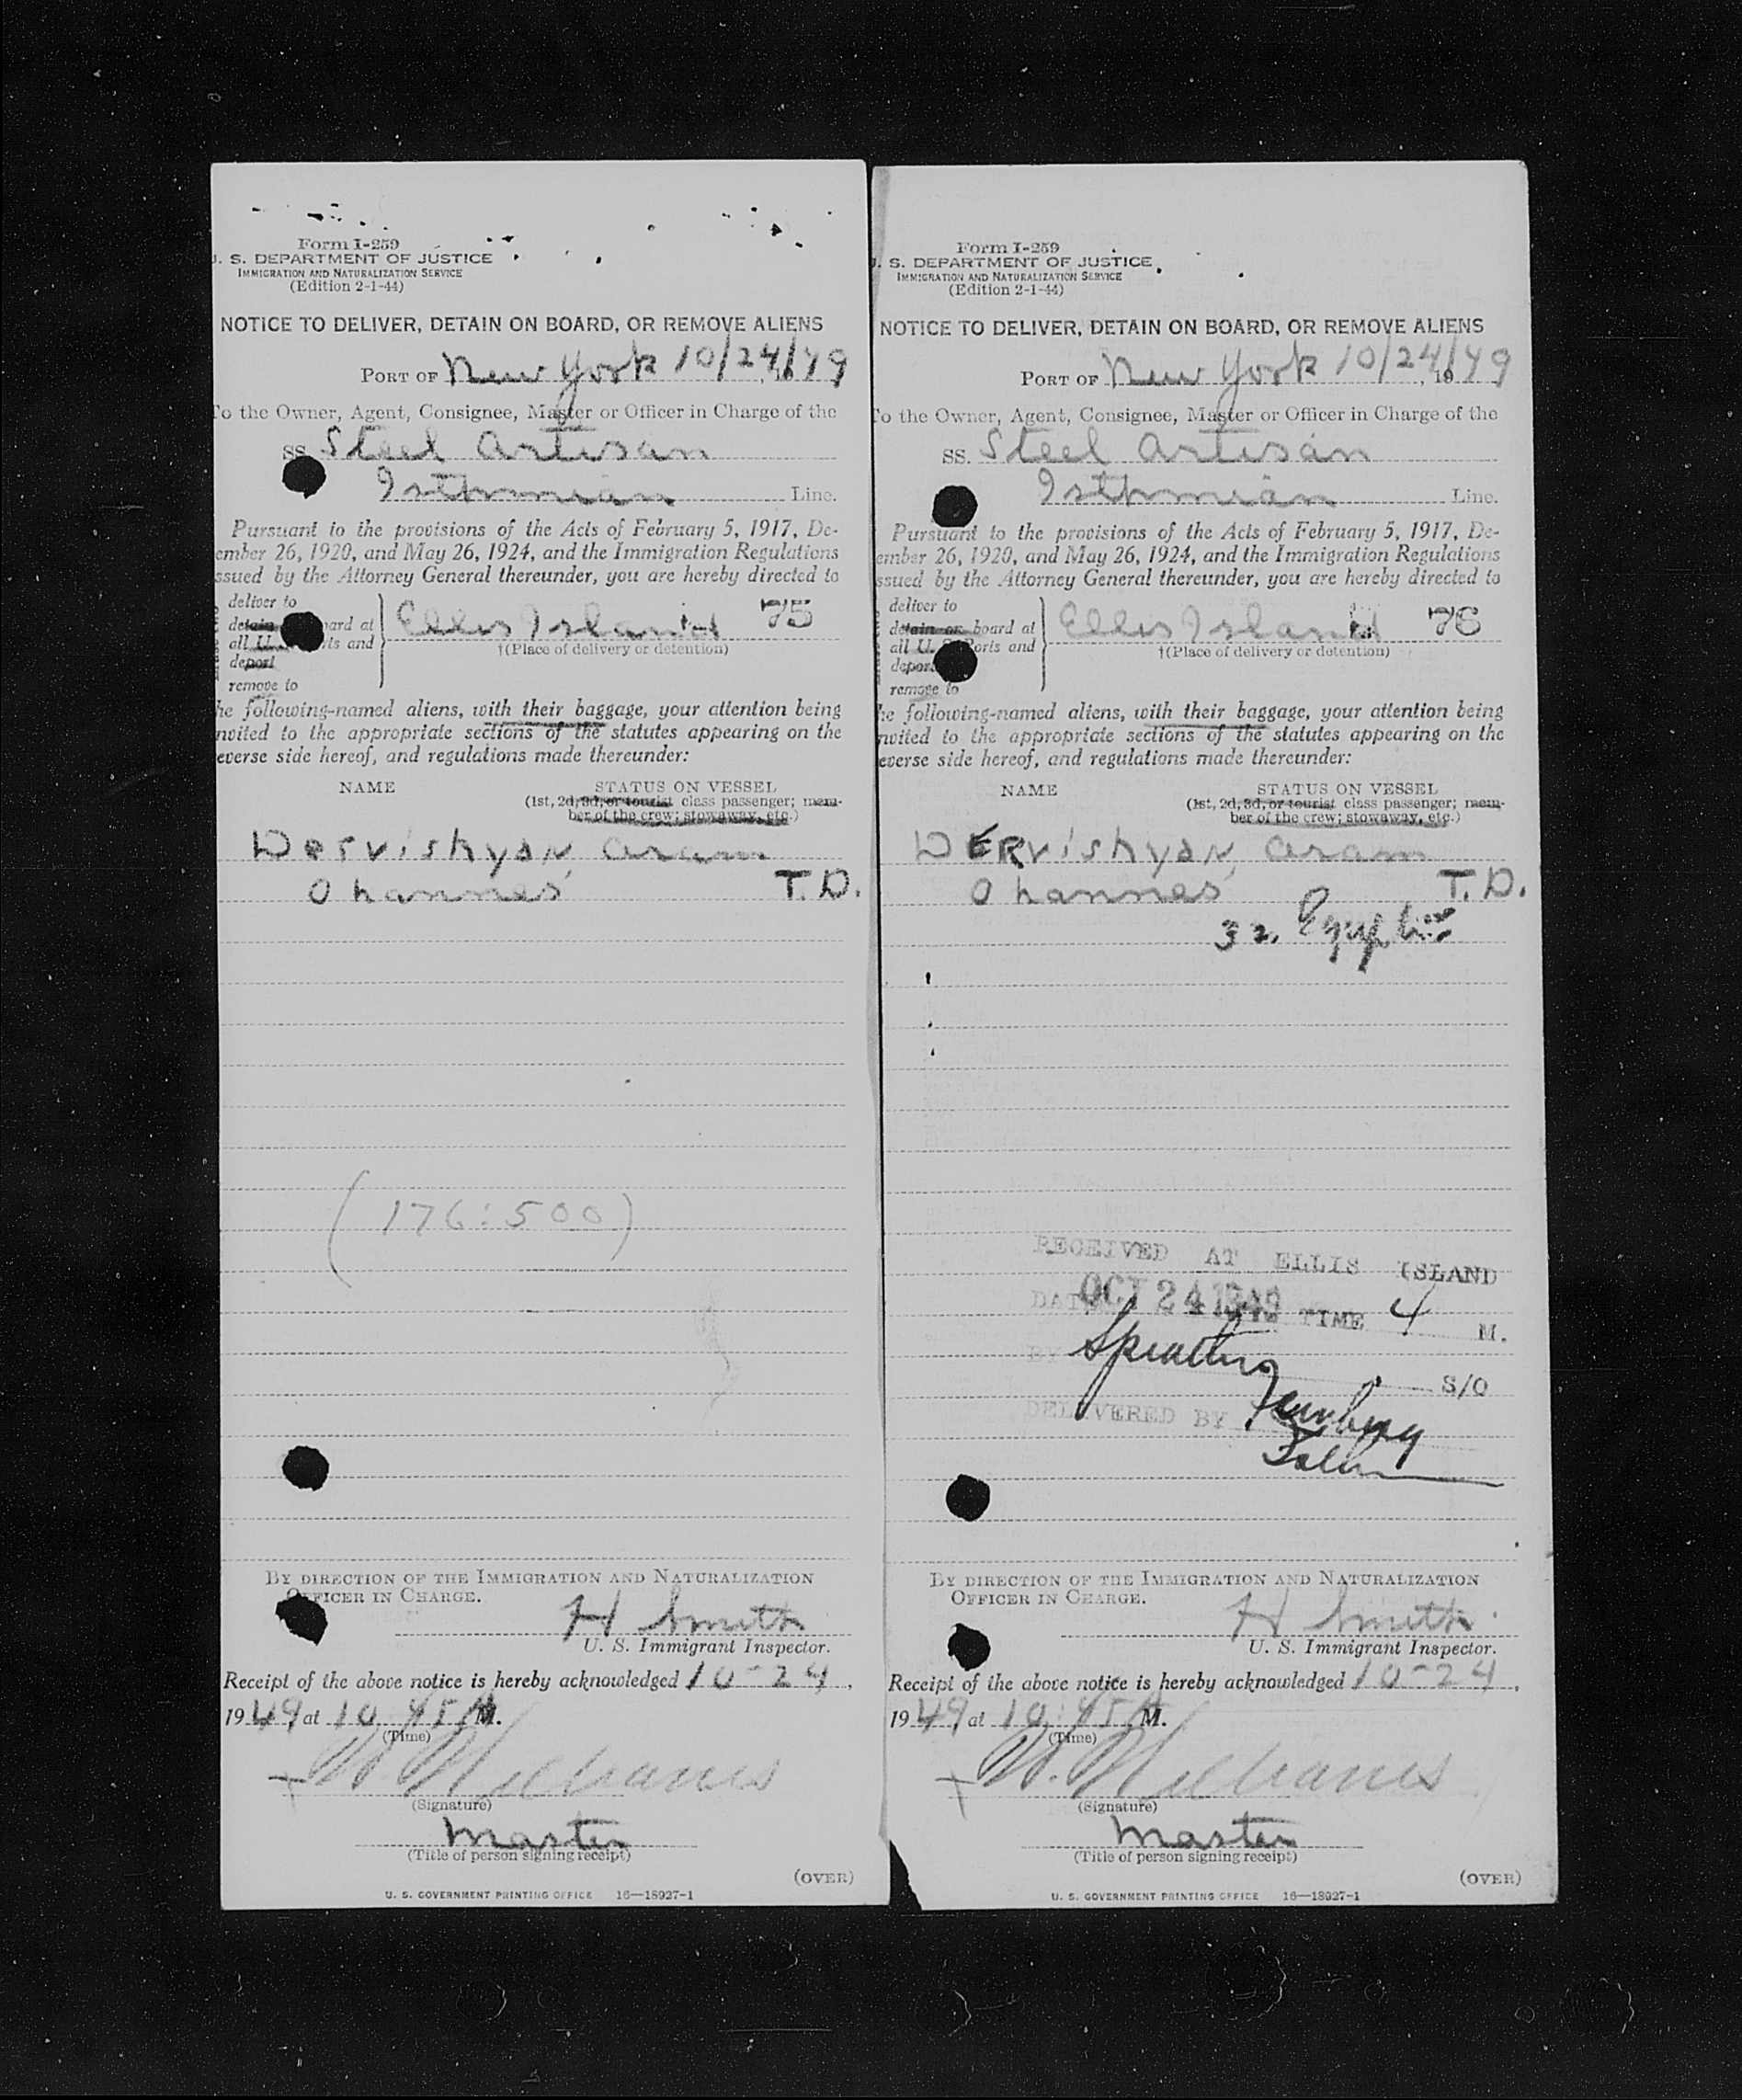 Form I-259
U. S. DEPARTMENT OF JUSTICE
IMMIGRATION AND NATURALIZATION SERVICE
(Edition 2-1-44)
NOTICE TO DELIVER, DETAIN ON BOARD, OR REMOVE ALIENS
PORT OF New York 10/24/49
To the Owner, Agent, Consignee, Master or Officer in Charge of the
SS. Steel Artisan
Isthmian Line.
Pursuant to the provisions of the Acts of February 5, 1917, De-
cember 26, 1920, and May 26, 1924, and the Immigration Regulations
issued by the Attorney General thereunder, you are hereby directed to
deliver to
detain board at
all U. ports and
deport
remove to
Ellis Island 75
†(Place of delivery or detention)
the following-named aliens, with their baggage, your attention being
invited to the appropriate sections of the statutes appearing on the
reverse side hereof, and regulations made thereunder:
NAME STATUS ON VESSEL
(1st, 2d, 3d, or tourist class passenger; mem-
ber of the crew; stowaway, etc.)
Dervishyan, Aram
Ohannes T.D.
(176:500)
BY DIRECTION OF THE IMMIGRATION AND NATURALIZATION
OFFICER IN CHARGE.
H Smith
U. S. Immigrant Inspector.
Receipt of the above notice is hereby acknowledged 10-24,
1949 at 10:45 A M.
(Time)
(Signature)
Master
(Title of person signing receipt)
(OVER)
U. S. GOVERNMENT PRINTING OFFICE 16—18927-1
Form I-259
U. S. DEPARTMENT OF JUSTICE
IMMIGRATION AND NATURALIZATION SERVICE
(Edition 2-1-44)
NOTICE TO DELIVER, DETAIN ON BOARD, OR REMOVE ALIENS
PORT OF New York 10/24, 1949
To the Owner, Agent, Consignee, Master or Officer in Charge of the
SS. Steel Artisan
Isthmian Line.
Pursuant to the provisions of the Acts of February 5, 1917, De-
cember 26, 1920, and May 26, 1924, and the Immigration Regulations
issued by the Attorney General thereunder, you are hereby directed to
deliver to
detain on board at
all U. S. Ports and
deport
remove to
Ellis Island 76
†(Place of delivery or detention)
the following-named aliens, with their baggage, your attention being
invited to the appropriate sections of the statutes appearing on the
reverse side hereof, and regulations made thereunder:
NAME STATUS ON VESSEL
(1st, 2d, 3d, or tourist class passenger; mem-
ber of the crew; stowaway, etc.)
DERvishyan, Aram
Ohannes T.D.
32.
RECEIVED AT ELLIS ISLAND
DATE OCT 24 1949 TIME 4 M.
BY S/O
DELIVERED BY
BY DIRECTION OF THE IMMIGRATION AND NATURALIZATION
OFFICER IN CHARGE.
H Smith
U. S. Immigrant Inspector.
Receipt of the above notice is hereby acknowledged 10-24,
1949, at 10:45 A M.
(Time)
(Signature)
Master
(Title of person signing receipt)
(OVER)
U. S. GOVERNMENT PRINTING OFFICE 16—18927-1